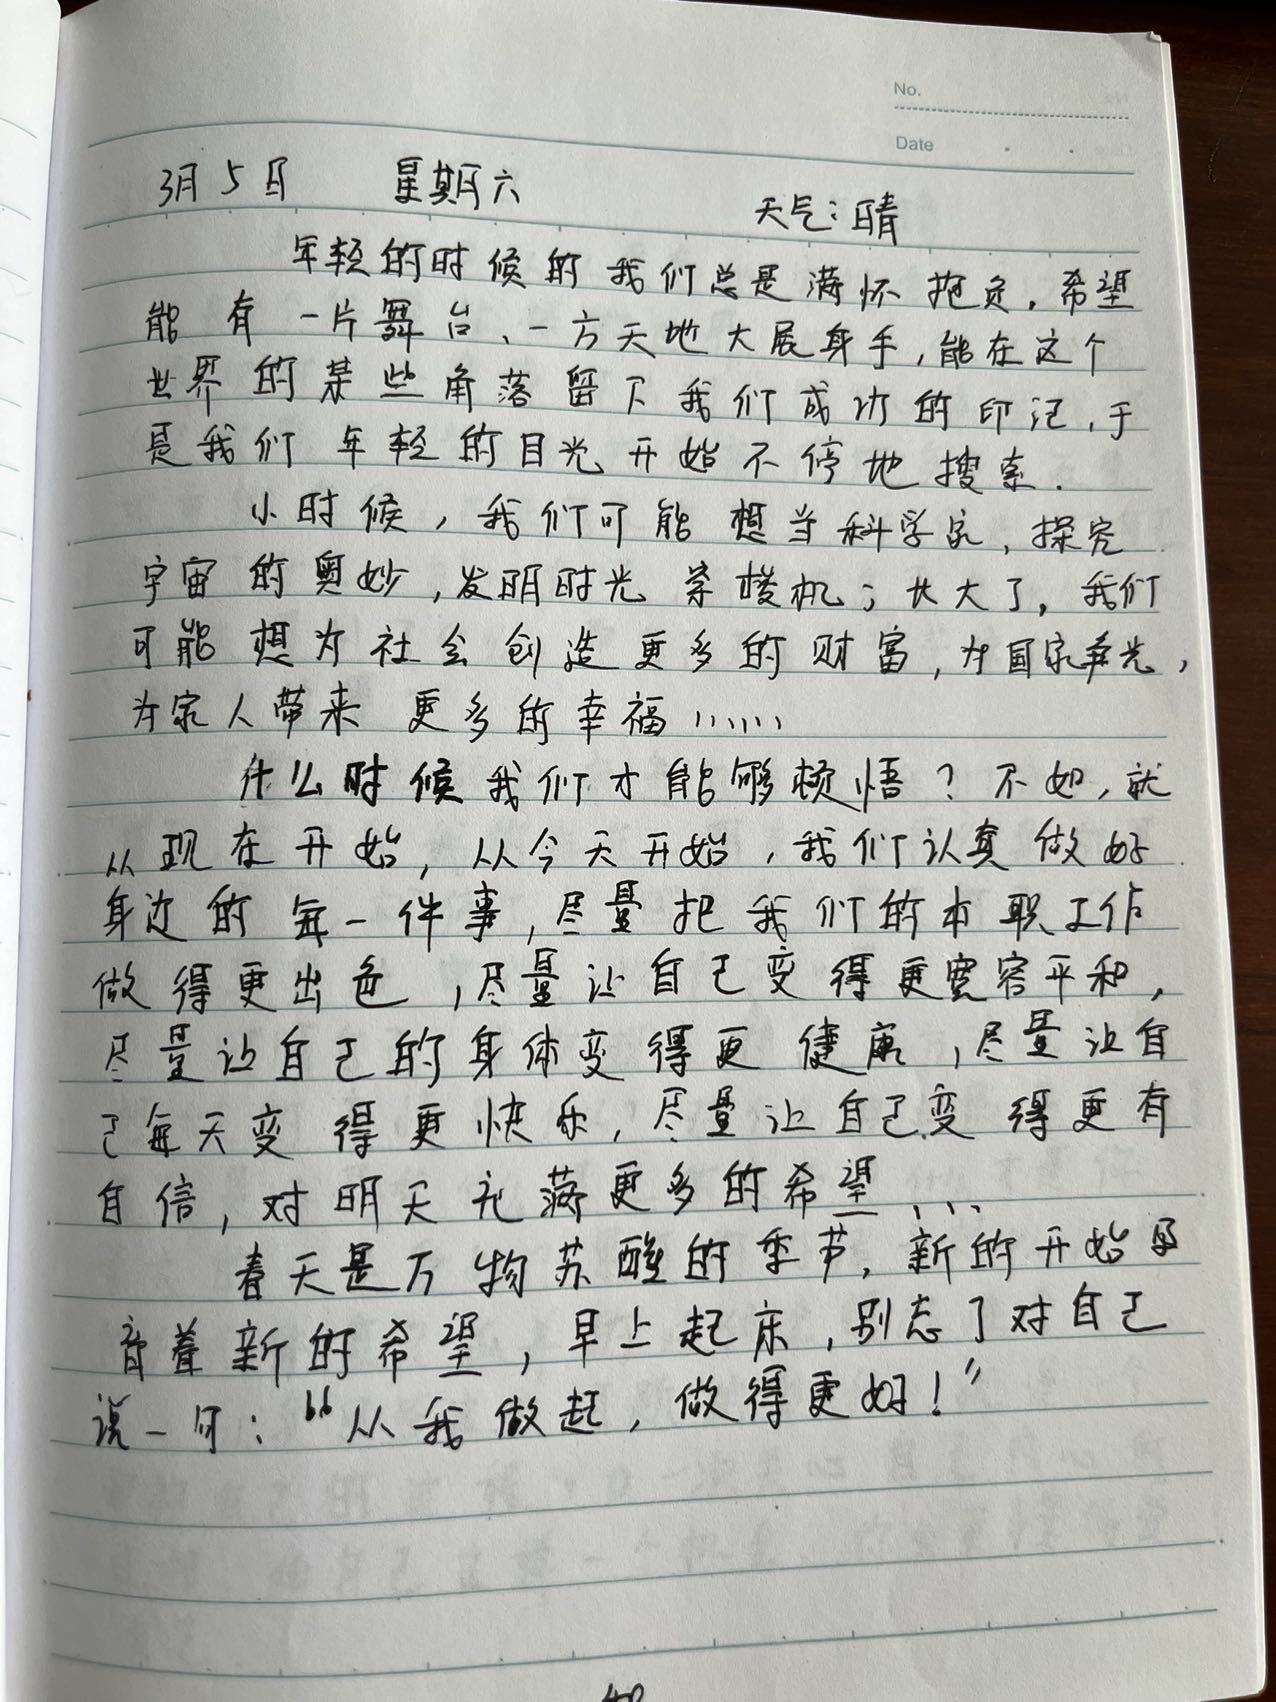 No.
Date
3月5日 星期六 天气:晴
年轻的时候的我们总是满怀抱负,希望
能有一片舞台、一方天地大展身手,能在这个
世界的某些角落留下我们成功的印记,于
是我们年轻的目光开始不停地搜索.
小时候,我们可能想当科学家,探究
宇宙的奥妙,发明时光穿梭机;长大了,我们
可能想为社会创造更多的财富,为国家争光,
为家人带来更多的幸福......
什么时候我们才能够顿悟?不如,就
从现在开始,从今天开始,我们认真做好
身边的每一件事,尽量把我们的本职工作
做得更出色,尽量让自己变得更宽容平和,
尽量让自己的身体变得更健康,尽量让自
己每天变得更快乐,尽量让自己变得更有
自信,对明天充满更多的希望......
春天是万物苏醒的季节,新的开始
着新的希望,早上起床,别忘了对自己
说一句:“从我做起,做得更好!”